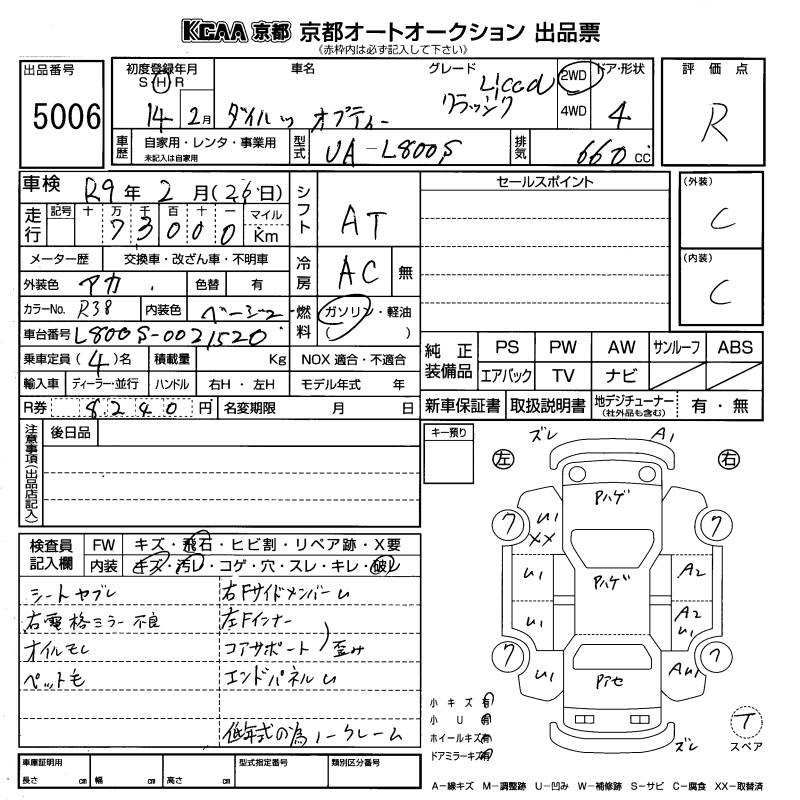 KCAA 京都 京都オートオークション 出品票
《赤枠内は必ず記入して下さい》
出品番号
5006
初度登録年月
S H R
14 2月
車名
ダイハツ オプティー
グレード
クラシック
2WD
4WD
ドア・形状
4
評価点
R
車歴
自家用・レンタ・事業用
未記入は自家用
型式
UA-L800S
排気
660 cc
車検 R9年 2月(26日)
走行
記号 十 万 千 百 十 一 マイル
73000 Km
シフト
AT
メーター歴 交換車・改ざん車・不明車
冷房
AC 無
外装色 アカ 色替 有
カラーNo. R38 内装色 ベージュ
燃料
ガソリン・軽油
( )
車台番号 L800S-0021520
乗車定員(4)名 積載量 Kg NOX適合・不適合
輸入車 ディーラー・並行 ハンドル 右H・左H モデル年式 年
R券 8240円 名変期限 月 日
セールスポイント
(外装)
C
(内装)
C
純正装備品
PS PW AW サンルーフ ABS
エアバック TV ナビ
新車保証書 取扱説明書 地デジチューナー
(社外品も含む)
有・無
注意事項(出品店記入)
後日品
キー預り
検査員記入欄
FW キズ・飛石・ヒビ割・リペア跡・X要
内装 キズ・汚レ・コゲ・穴・スレ・キレ・破レ
シートヤブレ
右電格ミラー不良
オイルモレ
ペット毛
右Fサイドメンバーu
左Fインナー
コアサポート
歪み
エンドパネルu
低年式の為ノークレーム
車庫証明用
長さ cm 幅 cm 高さ cm
型式指定番号
類別区分番号
左
右
ズレ
A1
Pハゲ
ワ
U1
XX
ワ
U1
Pハゲ
A2
U1
A2
U1
ワ
U1
Pアセ
AU1
ワ
ズレ
小キズ 有
小U 有
ホイールキズ 有
ドアミラーキズ 有
T
スペア
A-線キズ M-調整跡 U-凹み W-補修跡 S-サビ C-腐食 XX-取替済